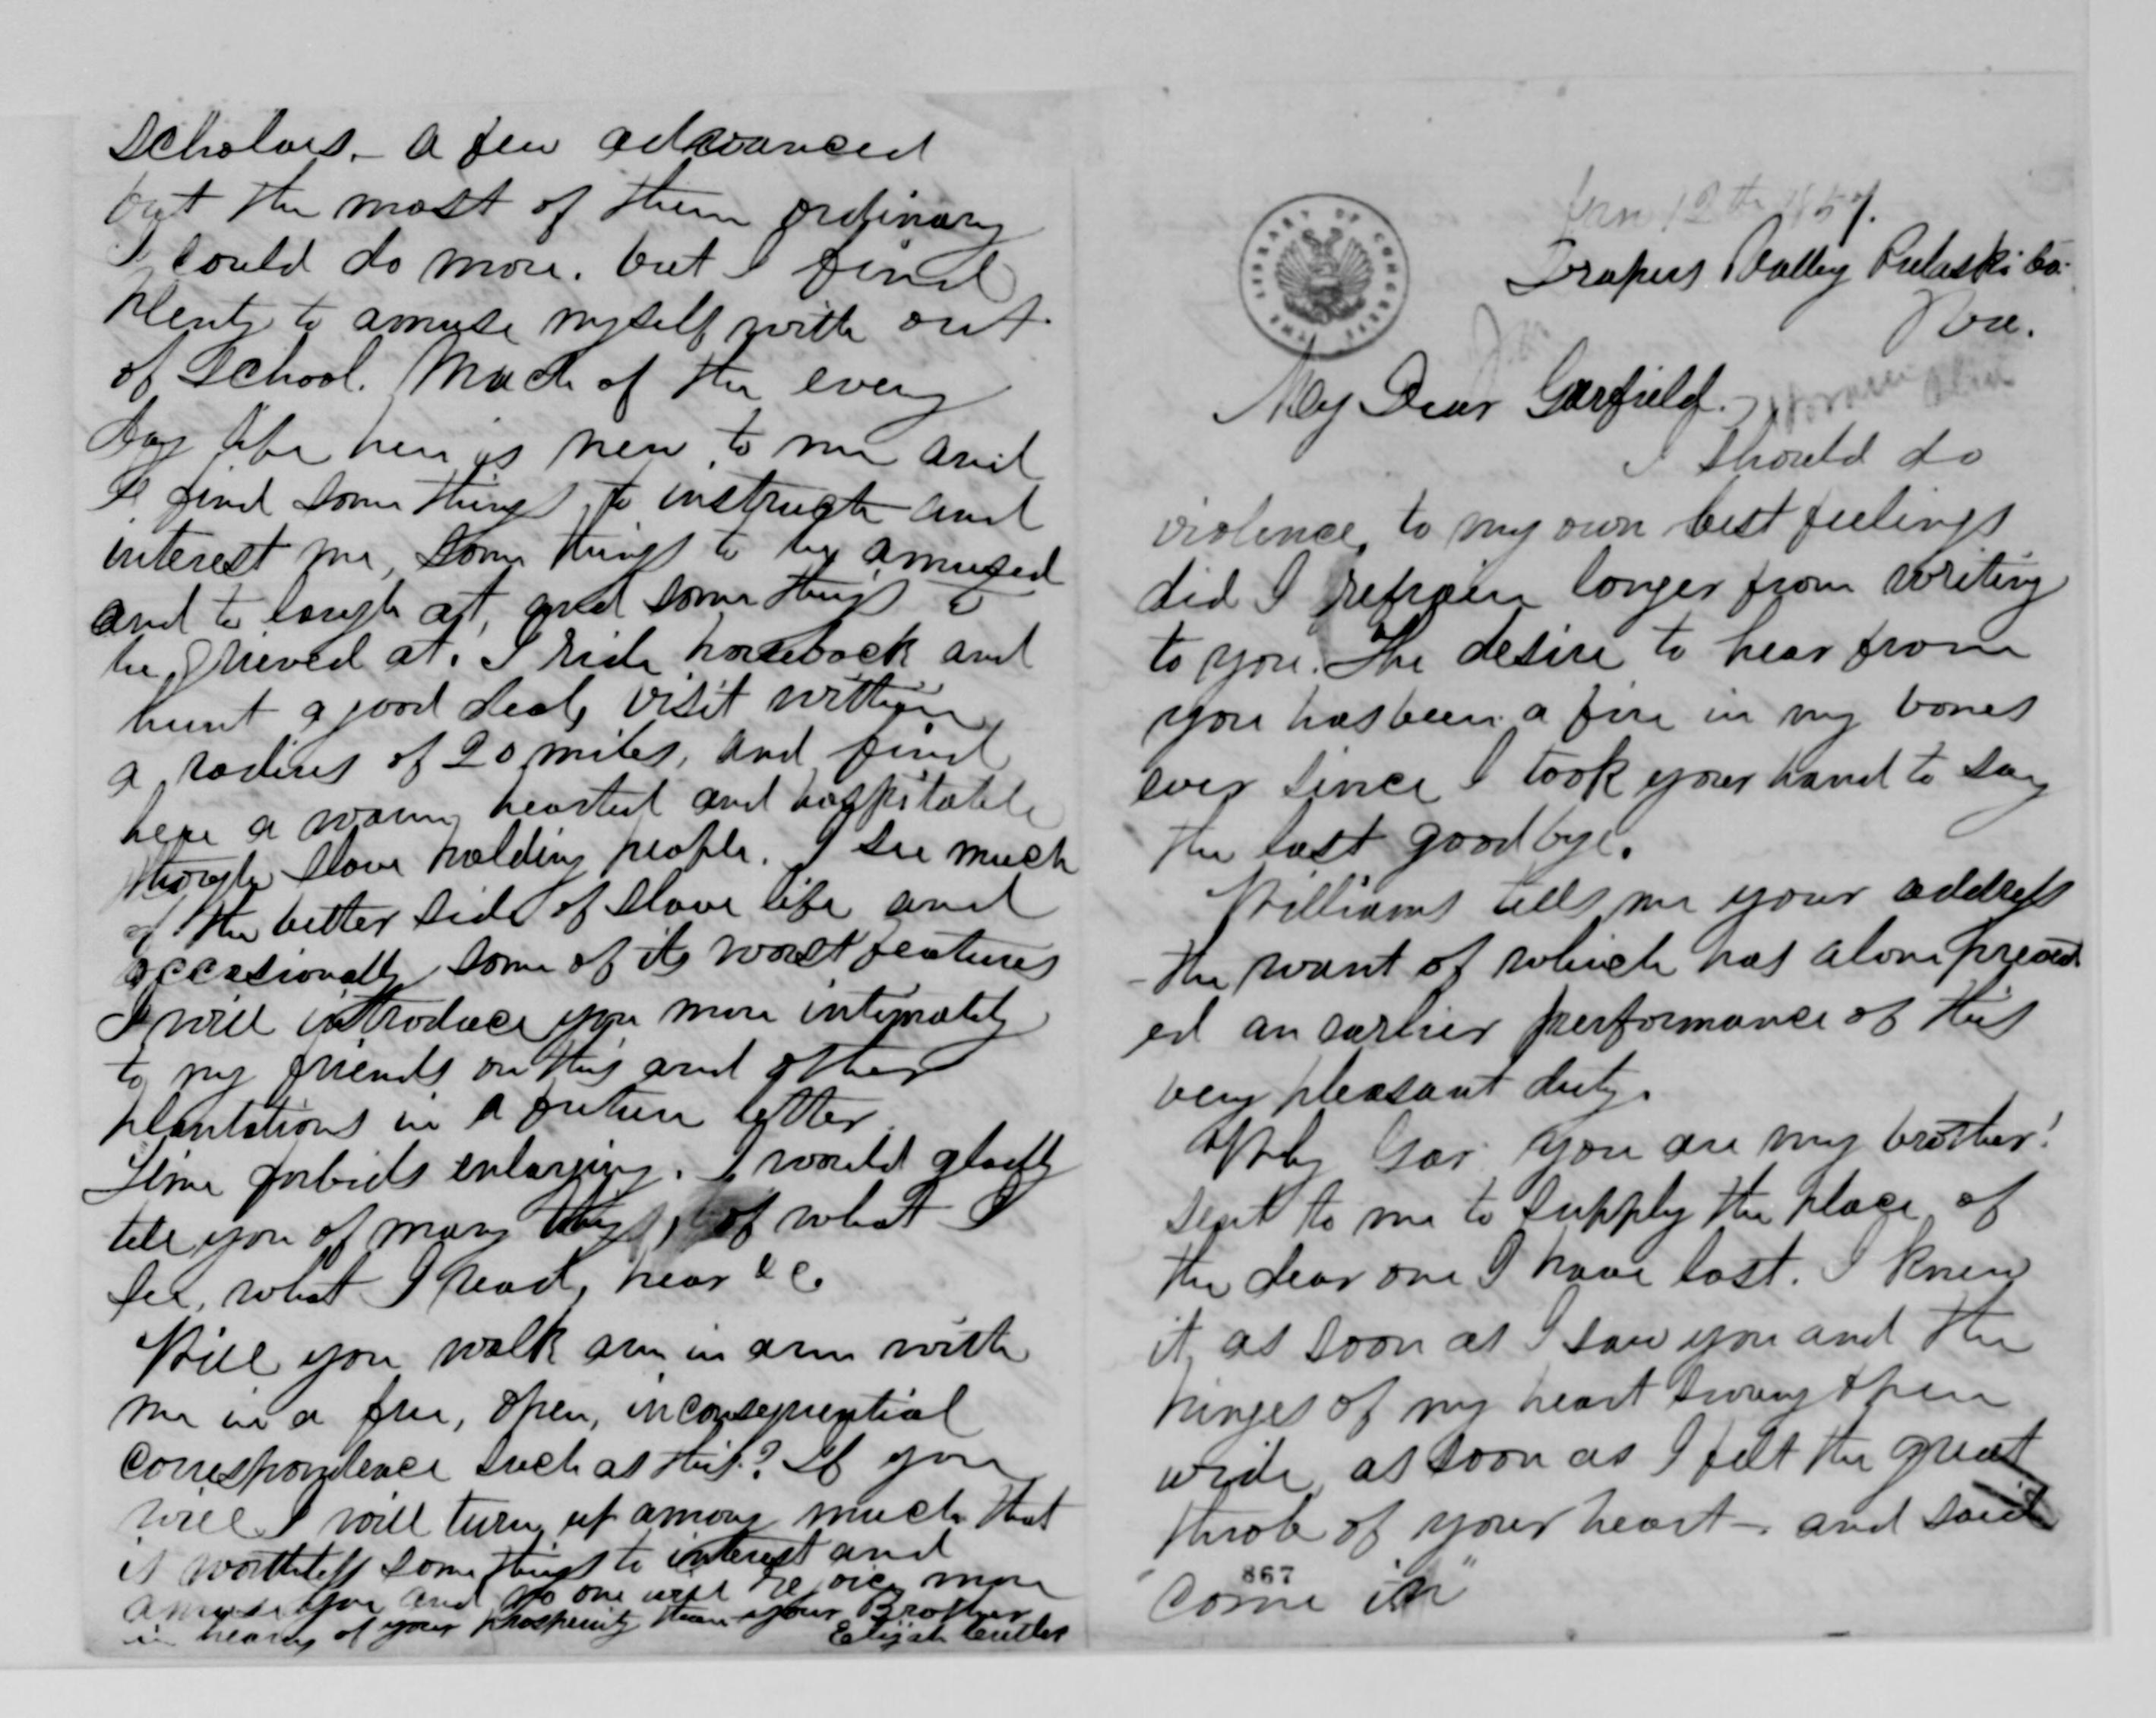 scholars. - a few advanced
but the most of them ordinary
I could do more. but I find
plenty to amuse myself with out
of school. Much of the every
day life here is new to me and
I find some things to instruct and
interest me, some things to be amused
and to laugh at, and some things to
be grieved at. I ride horseback and
hunt a good deal, visit within
a radius of 20 miles, and find
here a warm hearted and hospitable
though slave holding people. I see much
of the better side of slave life and
occasionally some of its worst features
I will introduce you more intimately
to my friends on this and other
plantations in a future letter.
Time forbids enlarging. I would gladly
tell you of many things, of what I
see, what I read, hear &c.
Will you walk arm in arm with
me in a free, open, inconsequential
correspondence such as this? If you
will I will turn up among much that
is worthless some things to interest and
amuse you and no one will rejoice more
in hearing of your prosperity than your Brother
Elijah Cutler
LIBRARY OF CONGRESS
Jan 12th 1857.
Drapers Valley Pulaski Co.
Va.
My Dear Garfield.
I should do
violence to my own best feelings
did I refrain longer from writing
to you. The desire to hear from
you has been a fire in my bones
ever since I took your hand to say
the last good bye.
Williams tells me your address
- the want of which has alone prevent
ed an earlier performance of this
very pleasant duty.
Why Gar you are my brother!
sent to me to supply the place of
the dear one I have lost. I knew
it as soon as I saw you and the
hinges of my heart swung open
wide as soon as I felt the great
throb of your heart - and said
"come in"
867